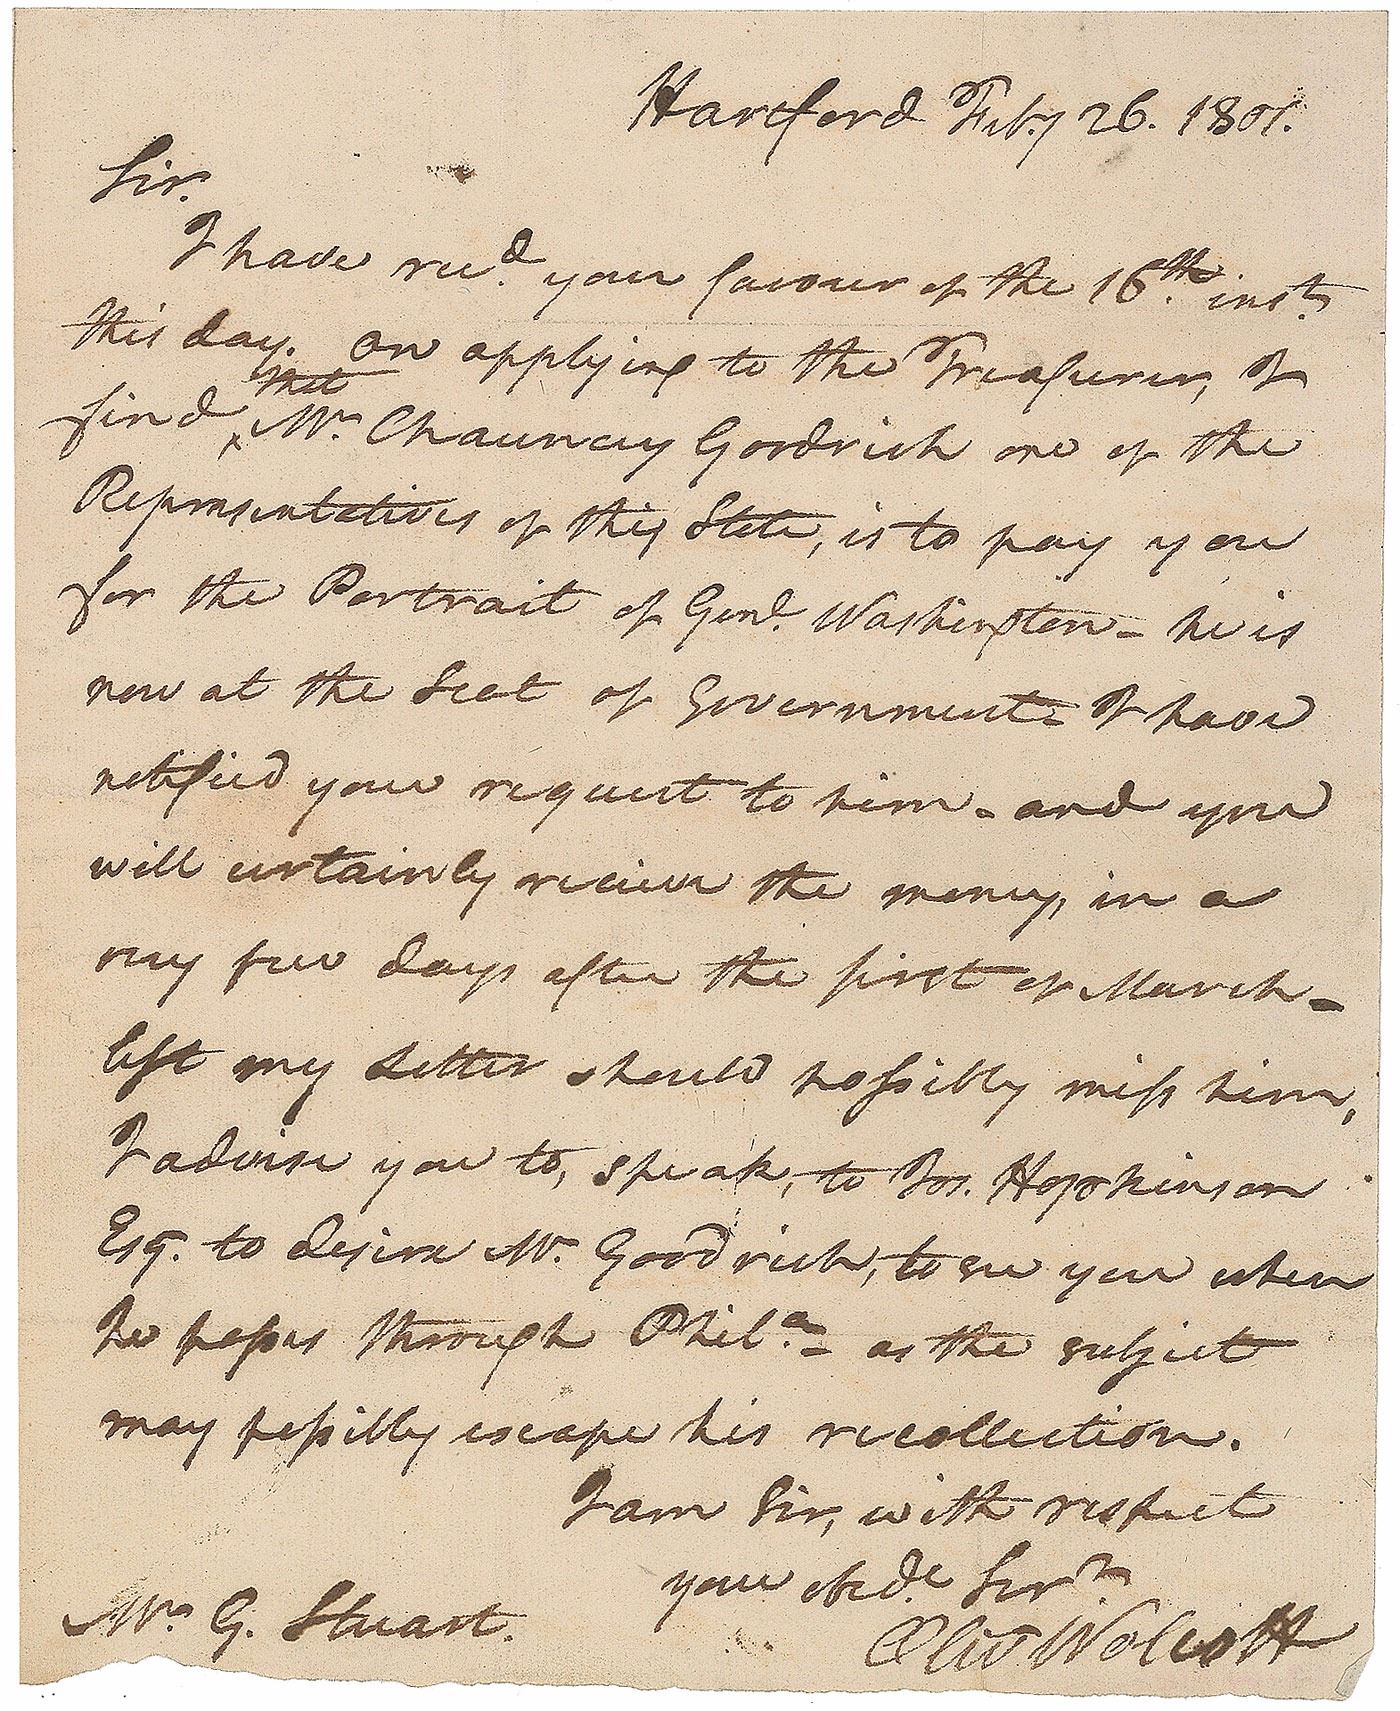 Hartford Feby 26. 1801.
Sir.
I have recd your favour of the 16th. inst.
this day. on applying to the Treasurer, I
find ^that Mr. Chauncey Goodrich one of the
Representatives of this State, is to pay you
for the Portrait of Genl. Washington - he is
now at the Seat of Government - I have
notified your request to him - and you
will certainly recieve the money, in a
very few days after the first of March -
lest my Letter should possibly miss him,
I advise you to, speak, to Jos. Hopkinson
Esq. to desire Mr. Goodrich, to see you when
he passes through Phila. - as the subject
may possibly escape his recollection.
I am Sir, with respect
your obedt Servt
Oliv Wolcott
Mr. G. Stuart.